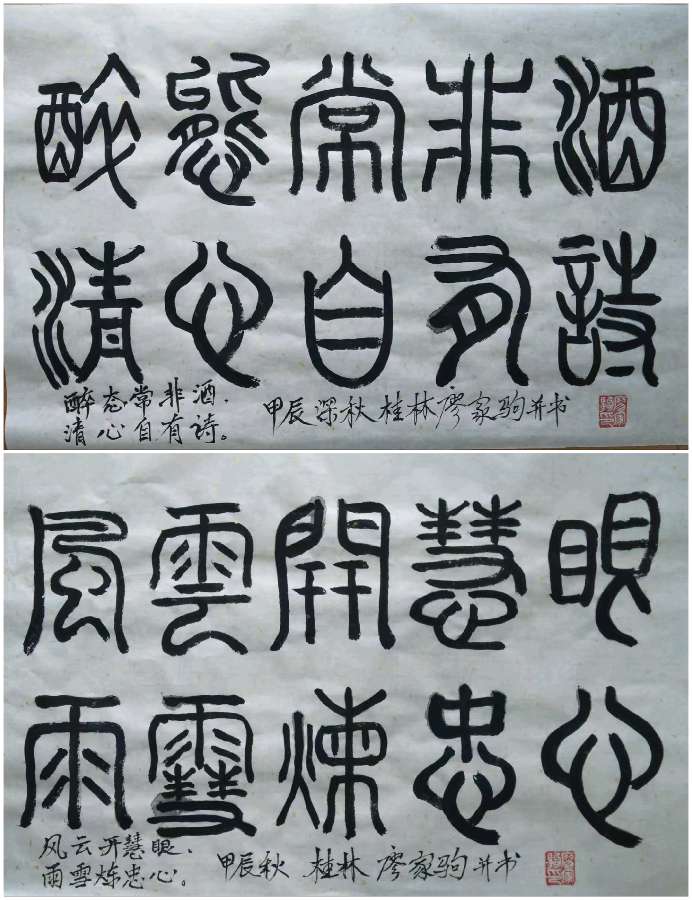 醉態常非酒
清心自有詩
醉态常非酒.
清心自有詩。
甲辰深秋 桂林廖家驹并书
風雲開慧眼
雨雪煉忠心
风云开慧眼.
雨雪炼忠心。
甲辰秋 桂林 廖家驹并书